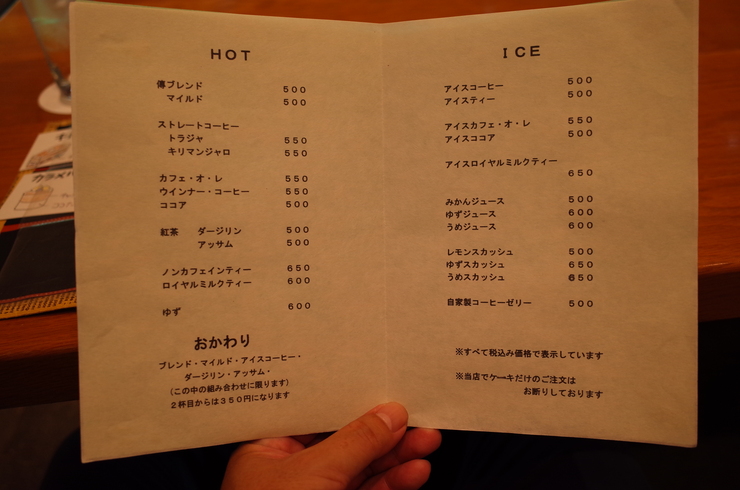 HOT
傳ブレンド 500
マイルド 500
ストレートコーヒー
トラジャ 550
キリマンジャロ 550
カフェ・オ・レ 550
ウインナー・コーヒー 550
ココア 500
紅茶 ダージリン 500
アッサム 500
ノンカフェインティー 650
ロイヤルミルクティー 600
ゆず 600
おかわり
ブレンド・マイルド・アイスコーヒー・
ダージリン・アッサム・
(この中の組み合わせに限ります)
2杯目からは350円になります
ICE
アイスコーヒー 500
アイスティー 500
アイスカフェ・オ・レ 550
アイスココア 500
アイスロイヤルミルクティー
650
みかんジュース 500
ゆずジュース 600
うめジュース 600
レモンスカッシュ 500
ゆずスカッシュ 650
うめスカッシュ 650
自家製コーヒーゼリー 500
※すべて税込み価格で表示しています
※当店でケーキだけのご注文は
お断りしております